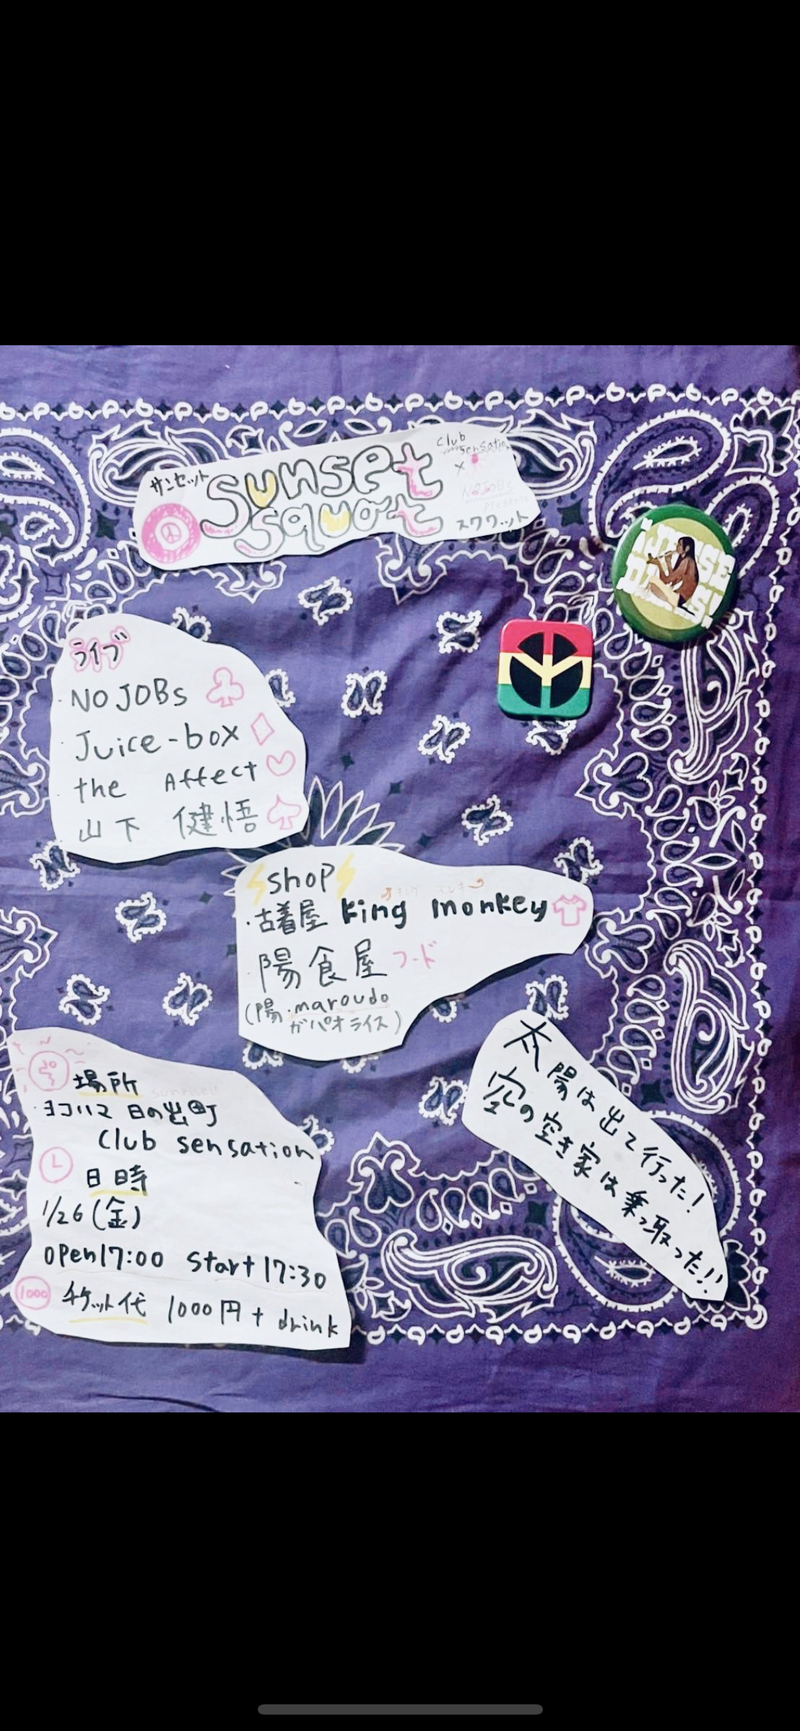 サンセット
sunset
squat
club
sensation
×
NOJOBs
スクワット
ライブ
・NO JOBs
・Juice-box
the Affect
・山下 健悟
shop
・古着屋 king monkey
・陽食屋 フード
(陽・maroudo
ガパオライス)
場所
・ヨコハマ 日の出町
club sensation
日時
1/26(金)
open17:00 start17:30
1000 チケット代 1000円+drink
太陽は出て行った!
空の空き家は乗っ取った!!